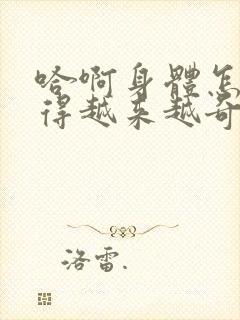 哈啊身體怎
得越来越奇
洛雷.